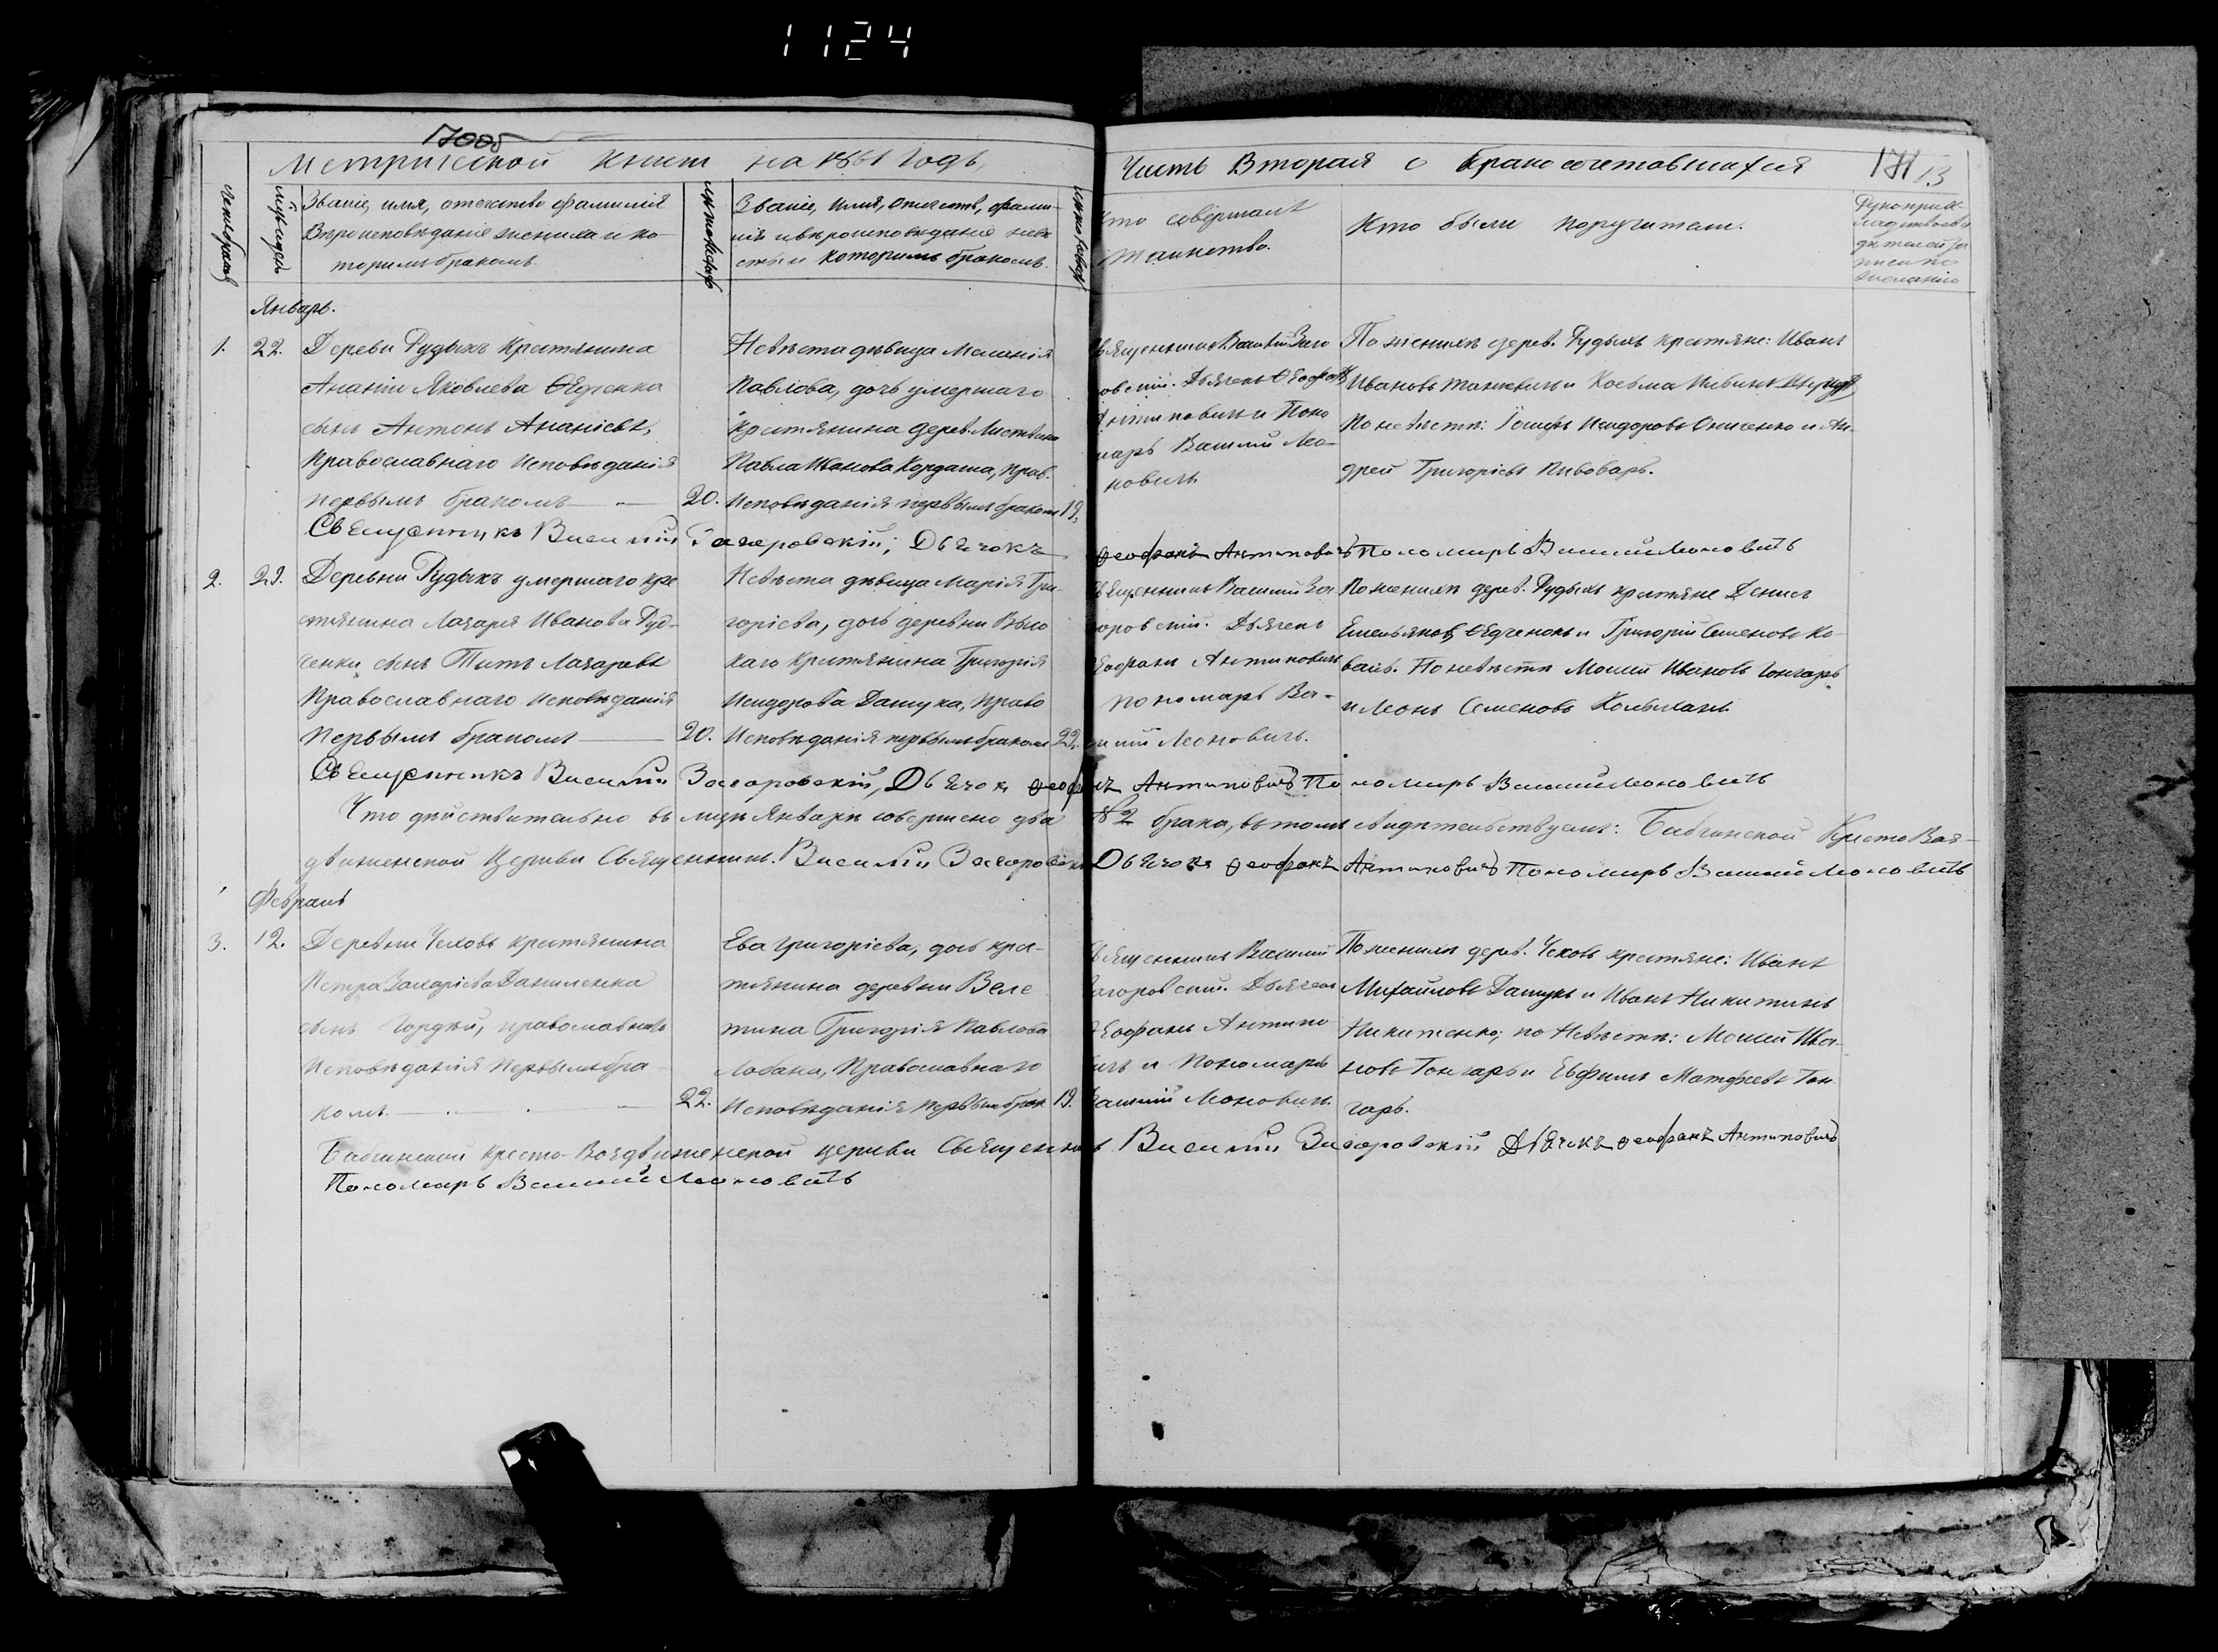 1124
170об
Метрической книги на 1861 Годъ,
Часть Вторая о бракосочетовшихся
171 13
Званіе, имя, отечество фамилія
Вѣроисповѣданіе жениха и ко-
торимъ бракомъ.
Званіе, Имя, Отечеств, фами-
лія и вѣроисповѣданіе невѣ
сты и Которимъ бракомъ.
Кто совершалъ
Таинство.
Кто были поручители.
Январь.
1. 22. Деревн Рудыхъ крестянина
Ананіи Яковлева Ѳедченка
сынъ Антонъ Ананіевъ,
Православнаго Исповѣданія
первымъ бракомъ 20.
Невѣста дѣвица Меланія
Павлова, дочь умершаго
Крестянина дерев.
Павла Иванова Кордаша, прав.
Исповѣданія первымъ бракомъ 19.
Священникъ Василій Заго
ровскій. Дьячекъ Ѳеофанъ
Антиповичъ и Поно
марь Василій Мо-
новичъ
По женихѣ дерев. Рудыхъ крестяне: Иванъ
Ивановъ и Косьма Ильинъ
По невѣстѣ: Исидоровъ Онисенко и Ан-
дрей Григоріевъ Пивоваръ.
Священникъ Василій Загоровскій, Дьячокъ Ѳеофанъ Антиповичъ Пономарь Василій Моновить
2. 29. Деревни Рудыхъ умершаго кре
стянина Лазаря Иванова Руд-
ченки сынъ Титъ Лазаревъ
Православнаго исповѣданія
Первымъ бракомъ 20.
Невѣста дѣвица Марія Гри-
горіева, дочь деревни Выло
каго крестянина Григорія
Исидорова Дашука, право
Исповѣданія первымъ бракомъ 22.
Священникъ Василій Заг
оровскій. Дьячекъ
Ѳеофанъ Антиповичъ
пономарь Ва-
силій Моновичъ.
По женихѣ дерев. Рудыхъ крестяне Денисъ
Емельяновъ Ѳедченокъ и Григорій Семеновъ Ко-
валь. По невѣстѣ Моисей Ивановъ Гончаръ
и Леонъ Семеновъ
Священникъ Василій Загоровскій, Дьячокъ Ѳеофанъ Антиповичъ Пономарь Василій Моновить
Что дѣйствительно въ м-цѣ Январѣ совершено два №2 брака, въ томъ свидѣтельствуемъ: Бабчинской Кресто Воз-
движенской Церкви Священникъ. Василій Загоровскій Дьячокъ Ѳеофанъ Антиповичъ Пономарь Василій Моновить
Февраль
3. 12. Деревни Чеховъ крестянина
Петра Захаріева Даниленка
сынъ Гордѣй, православнаго
Исповѣданія первымъ бра-
комъ. 22.
Ева Григоріева, дочь кре-
стянина деревни Веле
тина Григорія Павлова
Лобана, Православнаго
Исповѣданія первымъ брак 19.
Священникъ Василій
Загоровскій. Дьячекъ
Ѳеофанъ Антипо
вичъ и Пономарь
Василій Моновичъ.
По женихѣ дерев. Чеховъ крестяне: Иванъ
Михайловъ Дашукъ и Иванъ Никитинъ
Никитенко; по Невѣстѣ: Моисей Ива-
новъ Гончаръ и Евфимъ Матфеевъ Гон
чаръ.
Бабчинской Кресто-Воздвиженской церкви Священникъ Василій Загоровскій Дьячокъ Ѳеофанъ Антиповичъ
Пономарь Василій Моновить